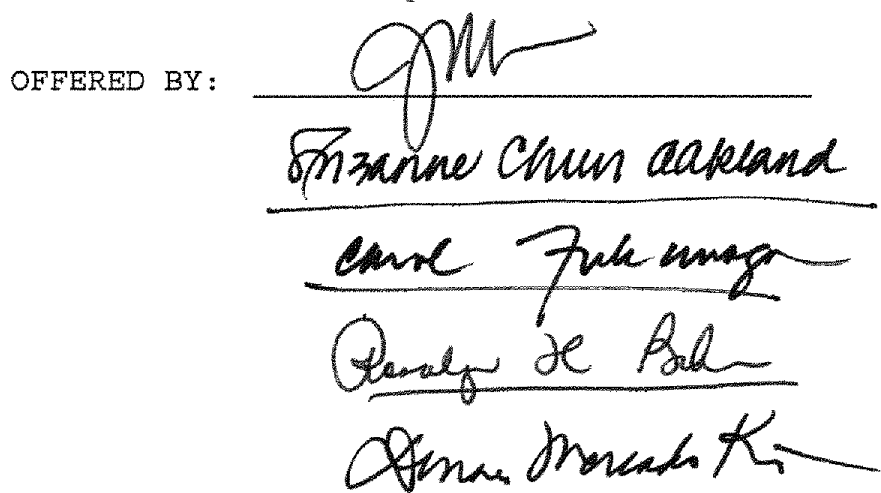 OFFERED BY:
Suzanne Chun Oakland
Carol Fukunaga
Rosalyn H Baker
Donna Mercado Kim